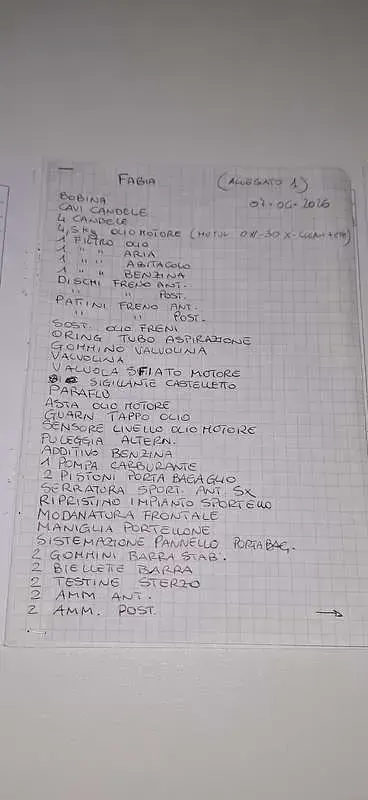 FABIA (ALLEGATO 1)
07-04-2026
BOBINA
CAVI CANDELE
4 CANDELE
4,5 Kg OLIO MOTORE (MOTUL 0W-30 X-CLEAN
1 FILTRO OLIO
1 " " ARIA
1 " " ABITACOLO
1 " " BENZINA
DISCHI FRENO ANT.
" " POST.
PATINI FRENO ANT.
" " POST.
SOST. OLIO FRENI
ORING TUBO ASPIRAZIONE
GOMMINO VALVOLINA
VALVOLINA
VALVOLA SFIATO MOTORE
SIGILLANTE CASTELLETTO
PARAFLU
ASTA OLIO MOTORE
GUARN TAPPO OLIO
SENSORE LIVELLO OLIO MOTORE
PULEGGIA ALTERN.
ADDITIVO BENZINA
1 POMPA CARBURANTE
2 PISTONI PORTA BAGAGLIO
SERRATURA SPORT. ANT. SX
RIPRISTINO IMPIANTO SPORTELLO
MODANATURA FRONTALE
MANIGLIA PORTELLONE
SISTEMAZIONE PANNELLO PORTABAG.
2 GOMMINI BARRA STAB.
2 BIELLETTE BARRA
2 TESTINE STERZO
2 AMM ANT.
2 AMM. POST. →